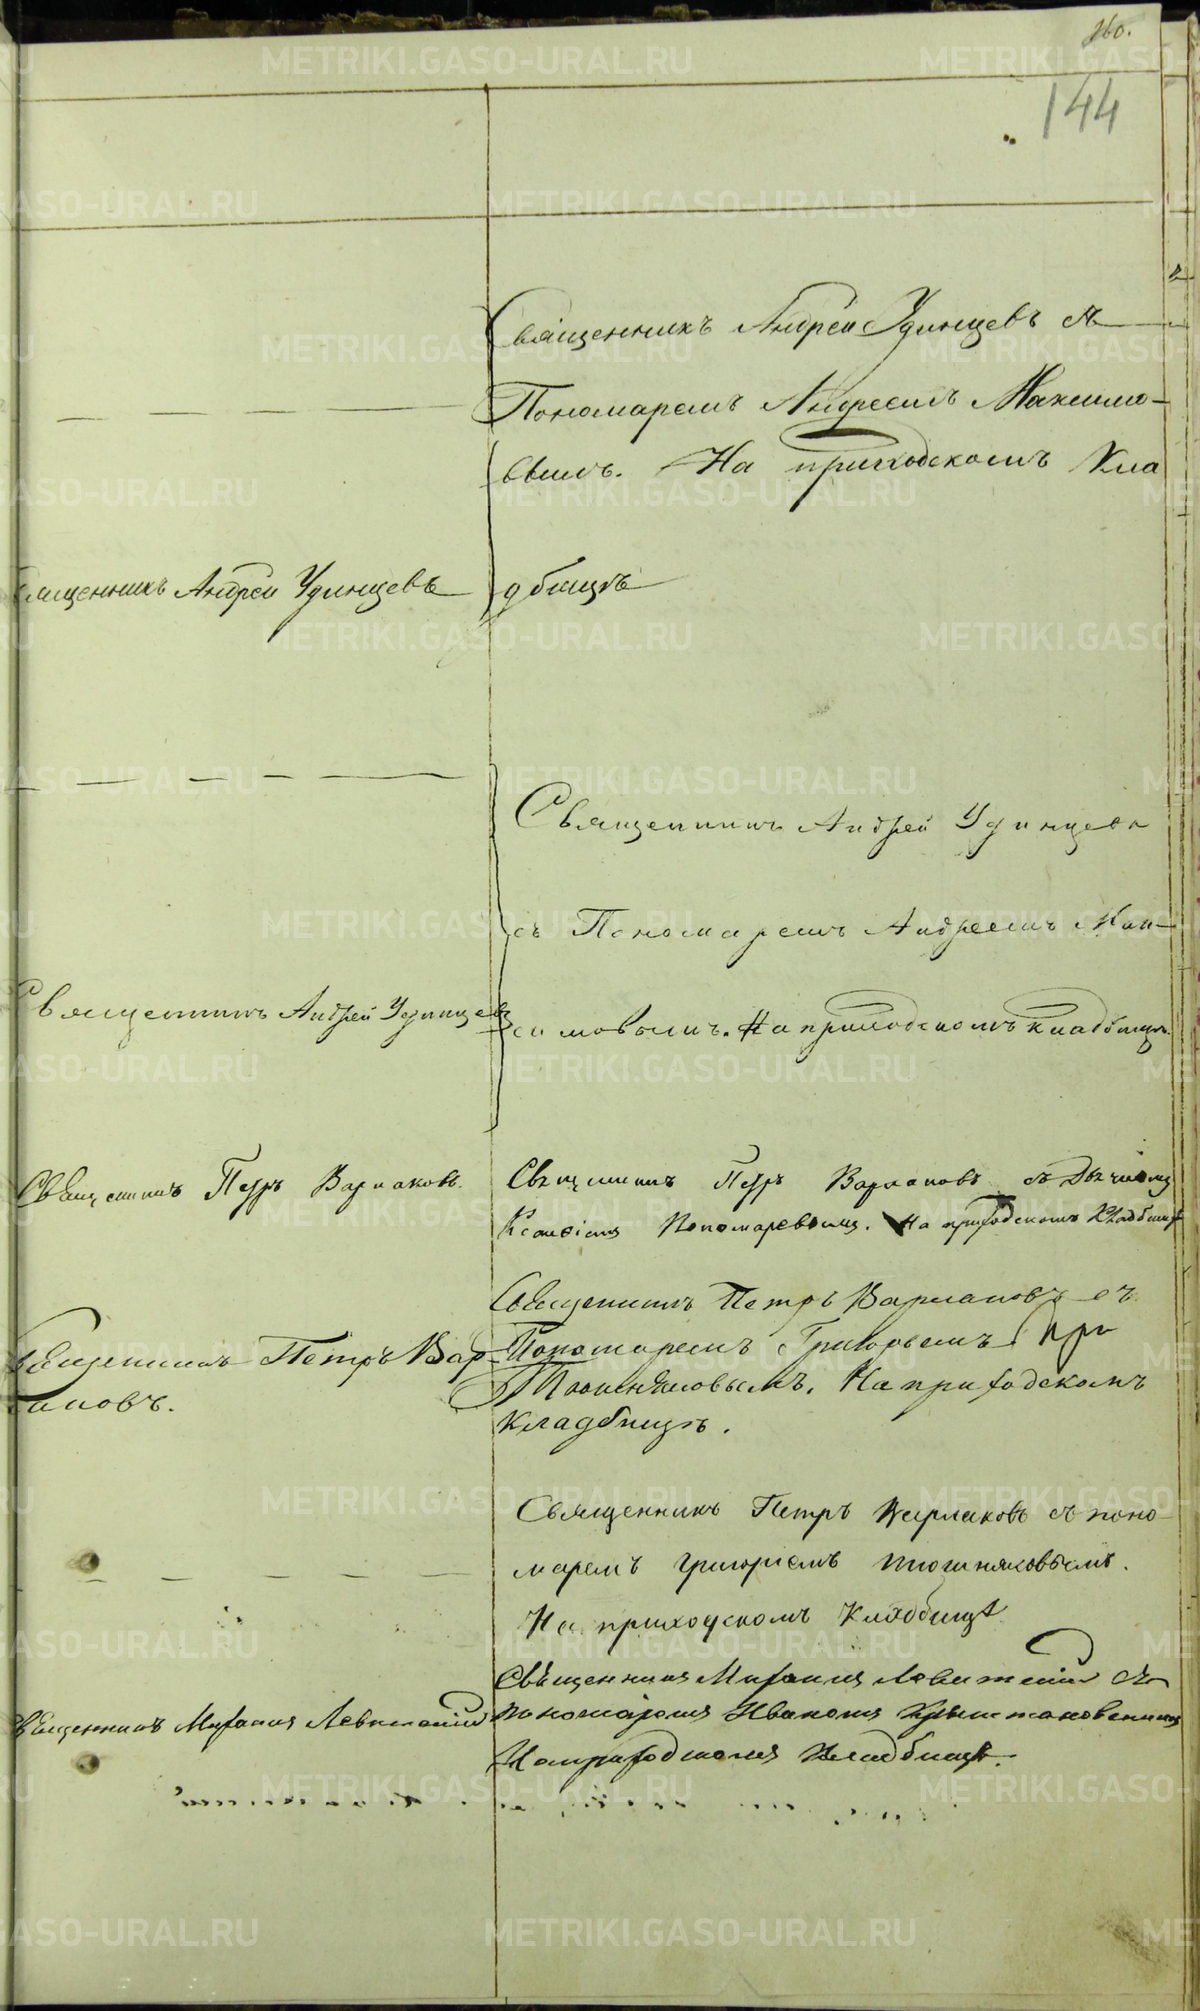 260.
144
Священникъ Андрей Удинцевъ съ
Пономаремъ Андреемъ Максимо-
вымъ. На приходскомъ Кла
Священникъ Андрей Удинцевъ
дбищѣ
Священникъ Андрей Удинцевъ
съ Пономаремъ Андреемъ Мак-
Священникъ Андрей Удинцевъ
симовымъ. На приходскомъ кладбищѣ.
Священникъ Петръ Варлаковъ.
Священникъ Петръ Варлаковъ съ Дьячкомъ
Пономаревымъ. На приходскомъ Кладбищѣ
Священникъ Петръ Варлаковъ съ
Священникъ Петръ Вар
Пономаремъ Григорьемъ
лаковъ.
На приходскомъ
Кладбищѣ.
Священникъ Петръ Варлаковъ съ поно-
маремъ Григоріемъ
На приходскомъ Кладбищѣ
Священникъ Михаилъ Левитскій съ
Священникъ Михаилъ Левитскій
пономаремъ Иваномъ
На приходскомъ Кладбищѣ.
METRIKI.GASO-URAL.RU